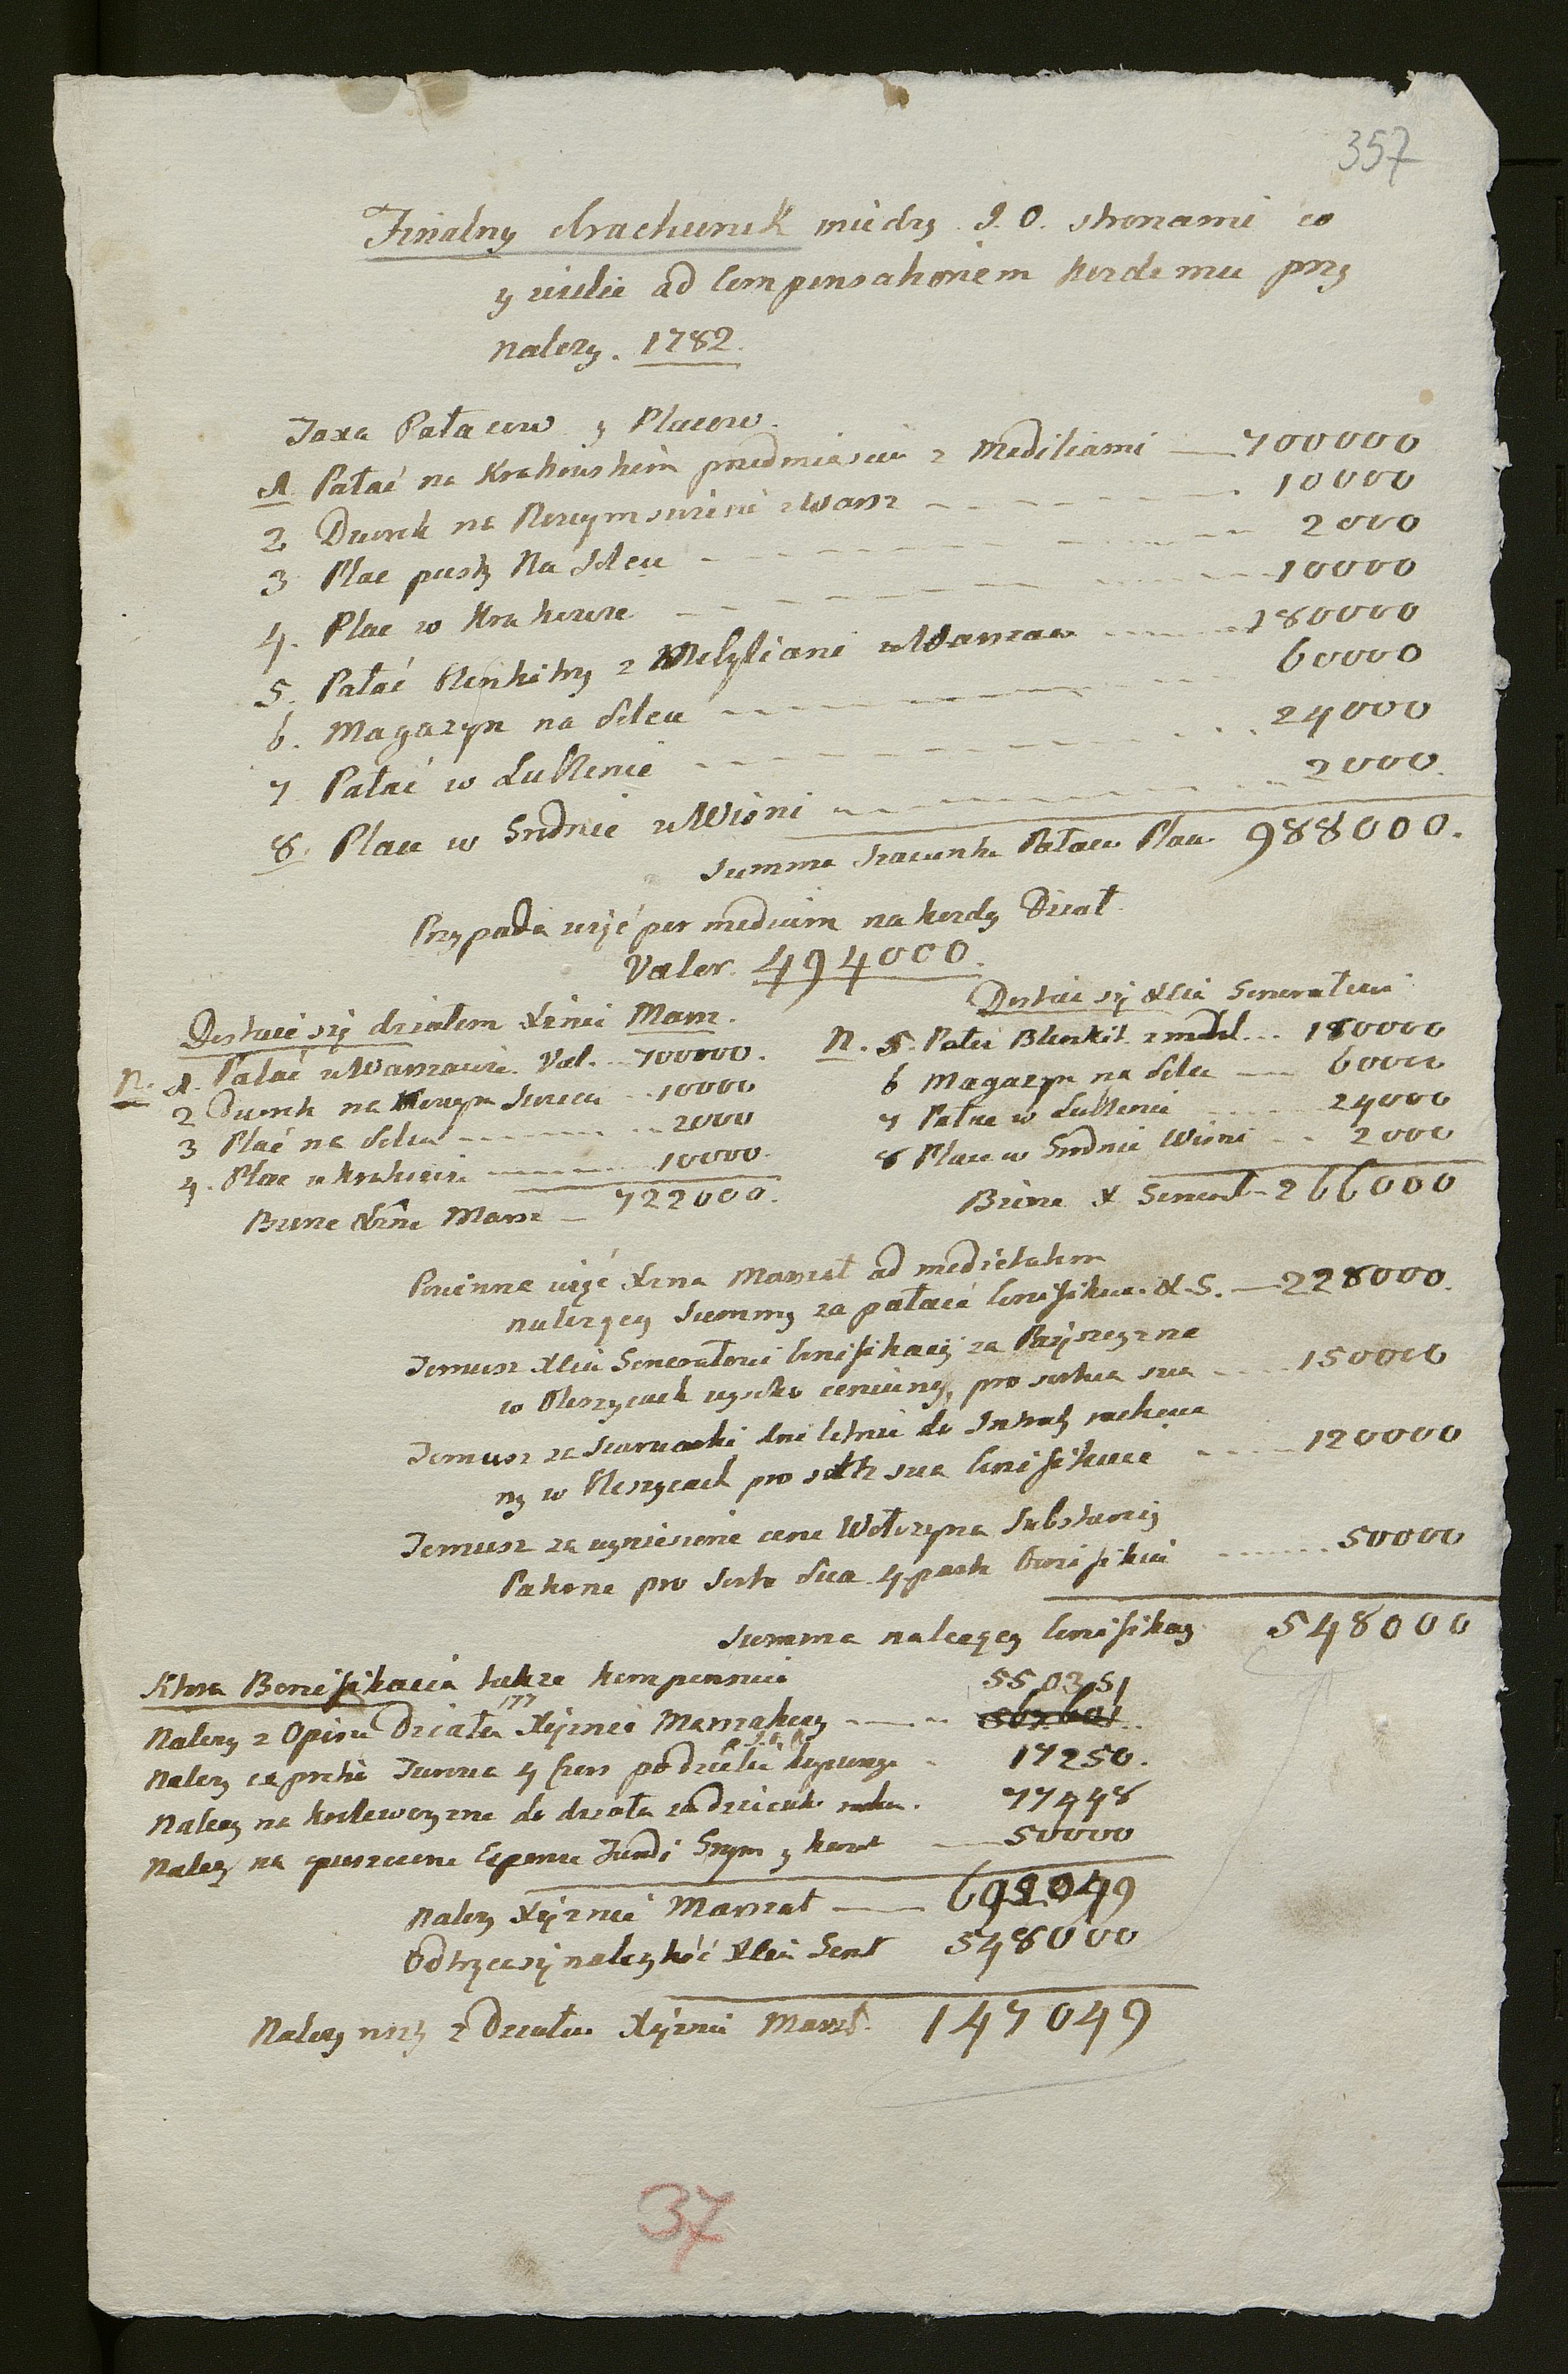 357
Finalny Rachunek miedzy J. O. stronami co
y wiele ad Compensationem kozdemu przy
nalezy. 1782.
Taxa Pałacow y Placow.
1. Pałac na Krakowskim przedmiesciu z Mebiliami — 700000
2 Dworek na Nowym swiecie w Warsz 10000
3 Plac pusty Na Solcu 2000
4. Plac w Krakowie 10000
5. Pałac Blenkitny z Mebyliami w Warszaw 180000
6. Magazyn na Solcu 60000
7 Pałac w Lublinie 24000
8. Place w Grodnie w Wisni 2000.
Summa szacunku Palacu Placu 988000.
Przypada wziąć per medium na kozdy Dział
Valor. 494000.
Dostaie się działem Xżnie Marsz.
N. 1. Pałac w Warszawie Val. 700000.
2 Dworek na Nowym Swiecu 10000
3 Plac na Solcu 2000
4. Plac w Krakowie 10000.
Bierze Xżna Marsz — 722000.
Dostaie się Xciu Generałowi
N. 5. Pałac Blenkit. z mebl. 180000
6 Magazyn na Solcu — 60000
7 Pałac w Lublinie 24000
8 Place w Grodnie Wisni 2000
Bierze X Generał 266000
Powinna więc Xzna Marszał ad medietatem
nalezącey Summy za pałace bonifikow. X. G. — 228000.
Temuz Xciu Generałowi bonifikacij za Pańszczyzne
w Oleszycach wysoko cenioney, pro sorte sua 150000
Temuz za Szarwarki dni letnie do Intraty rachowa
ny w Oleszycach pro sorte sua bonifikacie 120000
Temuz za wyniesienie cene Wołczyna Substancij
pro sorte sua 4 parte bonifikuie 50000
Summa nalezącey bonifikacij 548000
Ktora Bonifikacia takze kompensuie
Nalezy z Opisu Działu Xiężnei Marszałkowy 550351
Nalezy 17250.
Nalezy na do działu 77448
Nalezy na Fundi 50000
Nalezy Xiężnei Marszał — 695049
Odtrąca się nalezytość Xcia Genł 548000
Nalezy z Działu Xiężnei Marszł. 147049
37